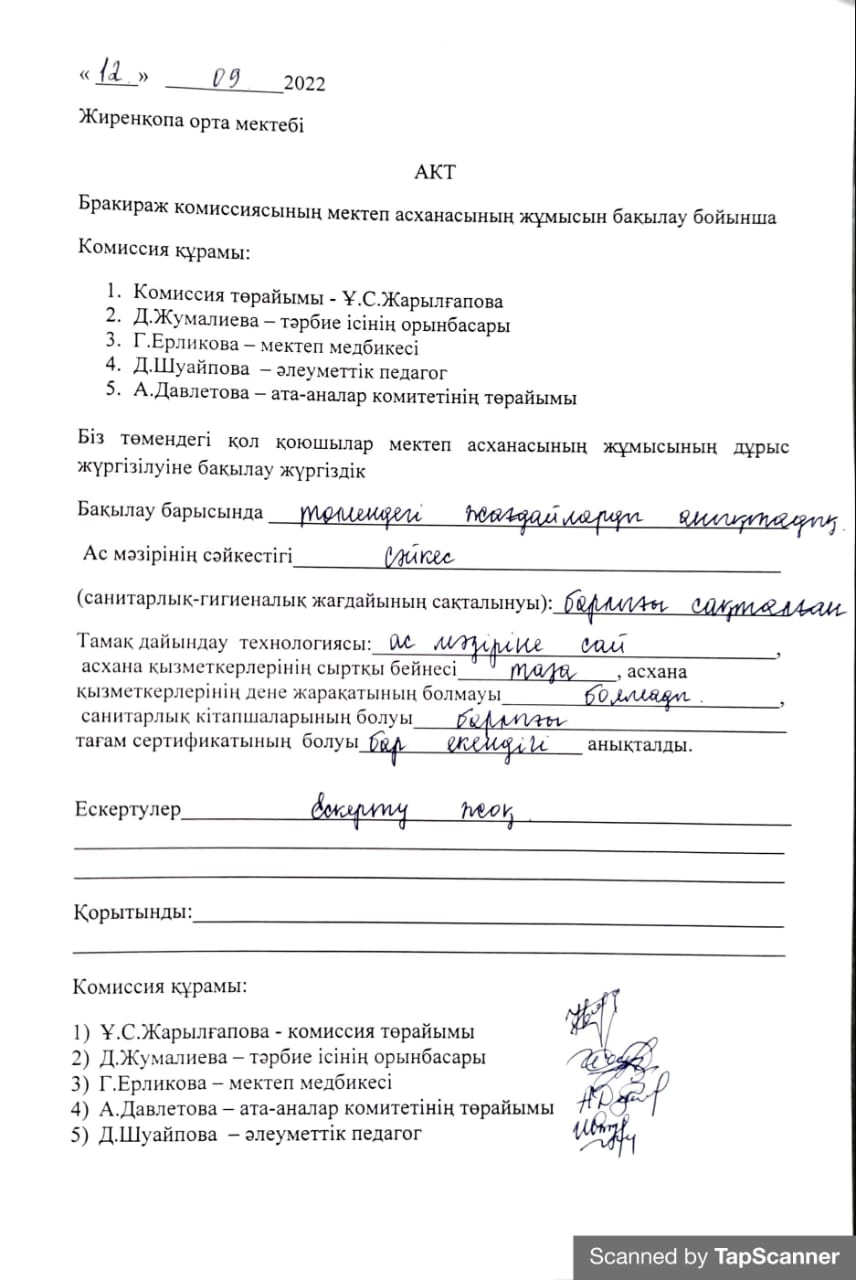 « 12 » 09 2022
Жиренқопа орта мектебі
АКТ
Бракираж комиссиясының мектеп асханасының жұмысын бақылау бойынша
Комиссия құрамы:
1. Комиссия төрайымы - Ұ.С.Жарылғапова
2. Д.Жумалиева – тәрбие ісінің орынбасары
3. Г.Ерликова – мектеп медбикесі
4. Д.Шуайпова – әлеуметтік педагог
5. А.Давлетова – ата-аналар комитетінің төрайымы
Біз төмендегі қол қоюшылар мектеп асханасының жұмысының дұрыс
жүргізілуіне бақылау жүргіздік
Бақылау барысында төмендегі жағдайларды анықтадық.
Ас мәзірінің сәйкестігі сәйкес
(санитарлық-гигиеналық жағдайының сақталынуы): барлығы сақталған
Тамақ дайындау технологиясы: ас мәзіріне сай ,
асхана қызметкерлерінің сыртқы бейнесі таза , асхана
қызметкерлерінің дене жарақатының болмауы болмады . ,
санитарлық кітапшаларының болуы барлығы
тағам сертификатының болуы бар екендігі анықталды.
Ескертулер Ескерту жоқ .
Қорытынды:
Комиссия құрамы:
1) Ұ.С.Жарылғапова - комиссия төрайымы
2) Д.Жумалиева – тәрбие ісінің орынбасары
3) Г.Ерликова – мектеп медбикесі
4) А.Давлетова – ата-аналар комитетінің төрайымы
5) Д.Шуайпова – әлеуметтік педагог
Scanned by TapScanner